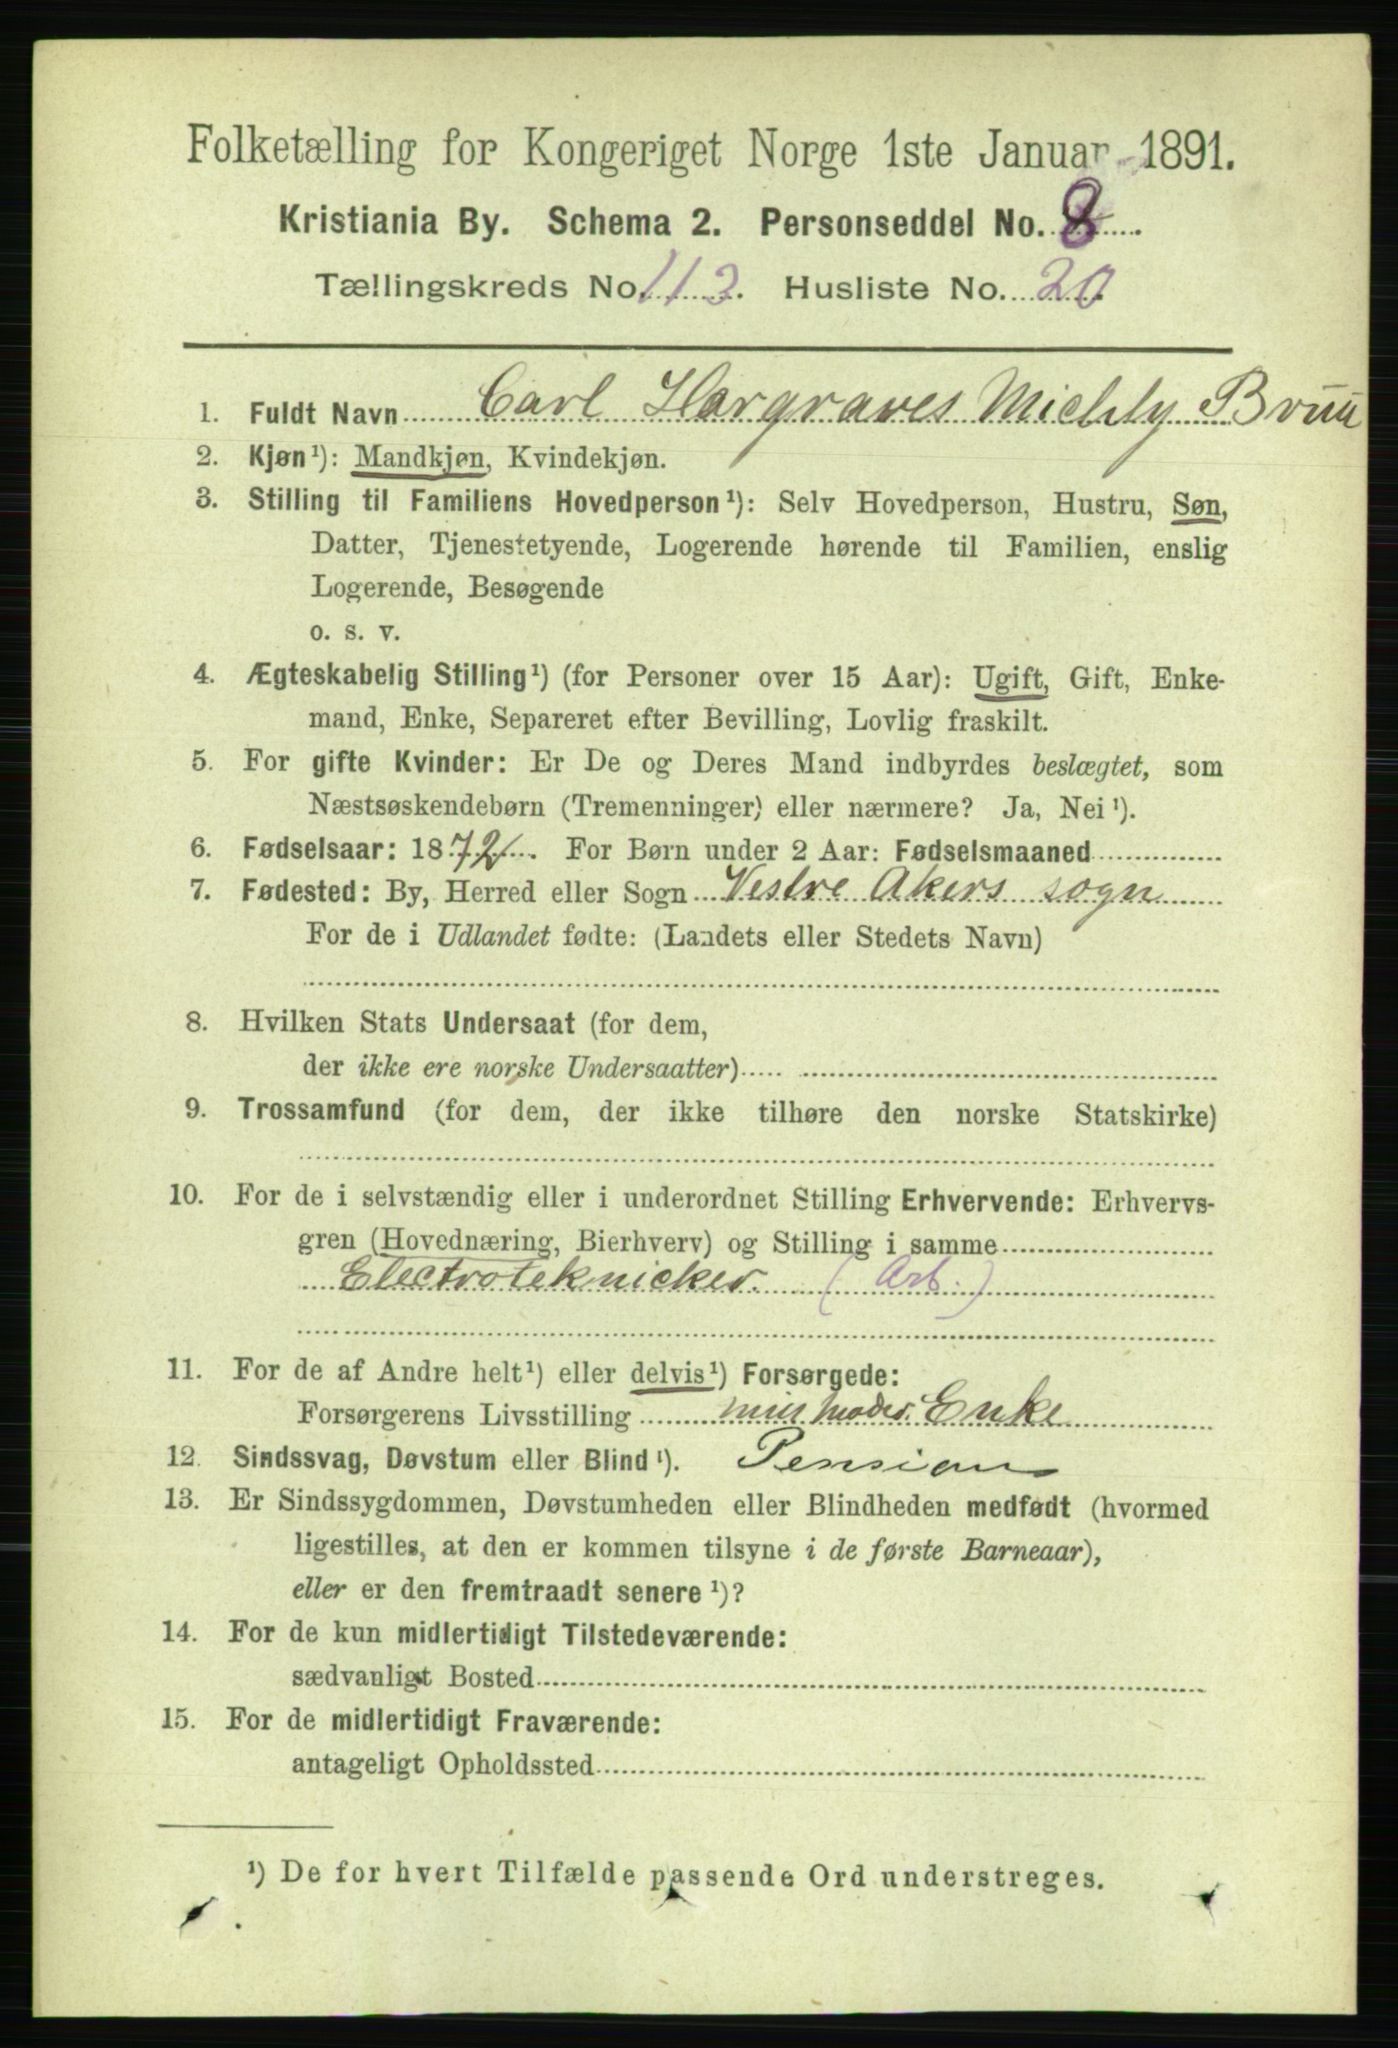 Folketælling for Kongeriget Norge 1ste Januar 1891.
Kristiania By. Schema 2. Personseddel No. 8
Tællingskreds No. 113. Husliste No. 20
1. Fuldt Navn Carl Hargraves Bruu
2. Kjøn¹): Mandkjøn, Kvindekjøn.
3. Stilling til Familiens Hovedperson¹): Selv Hovedperson, Hustru, Søn,
Datter, Tjenestetyende, Logerende hørende til Familien, enslig
Logerende, Besøgende
o. s. v.
4. Ægteskabelig Stilling¹) (for Personer over 15 Aar): Ugift, Gift, Enke-
mand, Enke, Separeret efter Bevilling, Lovlig fraskilt.
5. For gifte Kvinder: Er De og Deres Mand indbyrdes beslægtet, som
Næstsøskendebørn (Tremenninger) eller nærmere? Ja, Nei¹).
6. Fødselsaar: 1872. For Børn under 2 Aar: Fødselsmaaned
7. Fødested: By, Herred eller Sogn Vestre Akers sogn
For de i Udlandet fødte: (Landets eller Stedets Navn)
8. Hvilken Stats Undersaat (for dem,
der ikke ere norske Undersaatter)
9. Trossamfund (for dem, der ikke tilhøre den norske Statskirke)
10. For de i selvstændig eller i underordnet Stilling Erhvervende: Erhvervs-
gren (Hovednæring, Bierhverv) og Stilling i samme
Electroteknicker. (Arb.)
11. For de af Andre helt¹) eller delvis¹) Forsørgede:
Forsørgerens Livsstilling min moder. Enke
12. Sindssvag, Døvstum eller Blind¹). Pension
13. Er Sindssygdommen, Døvstumheden eller Blindheden medfødt (hvormed
ligestilles, at den er kommen tilsyne i de første Barneaar),
eller er den fremtraadt senere¹)?
14. For de kun midlertidigt Tilstedeværende:
sædvanligt Bosted
15. For de midlertidigt Fraværende:
antageligt Opholdssted
¹) De for hvert Tilfælde passende Ord understreges.